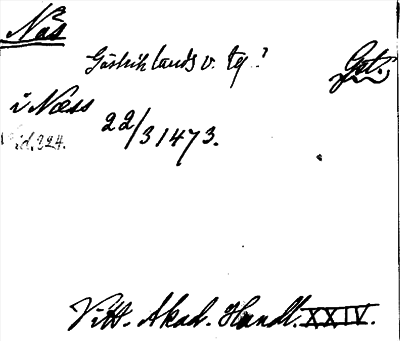 Näs
Gästriklands v. tg? Get.
i Næss 22/3 1473.
sid. 324.
Vitt. Akad. Handl. XXIV.